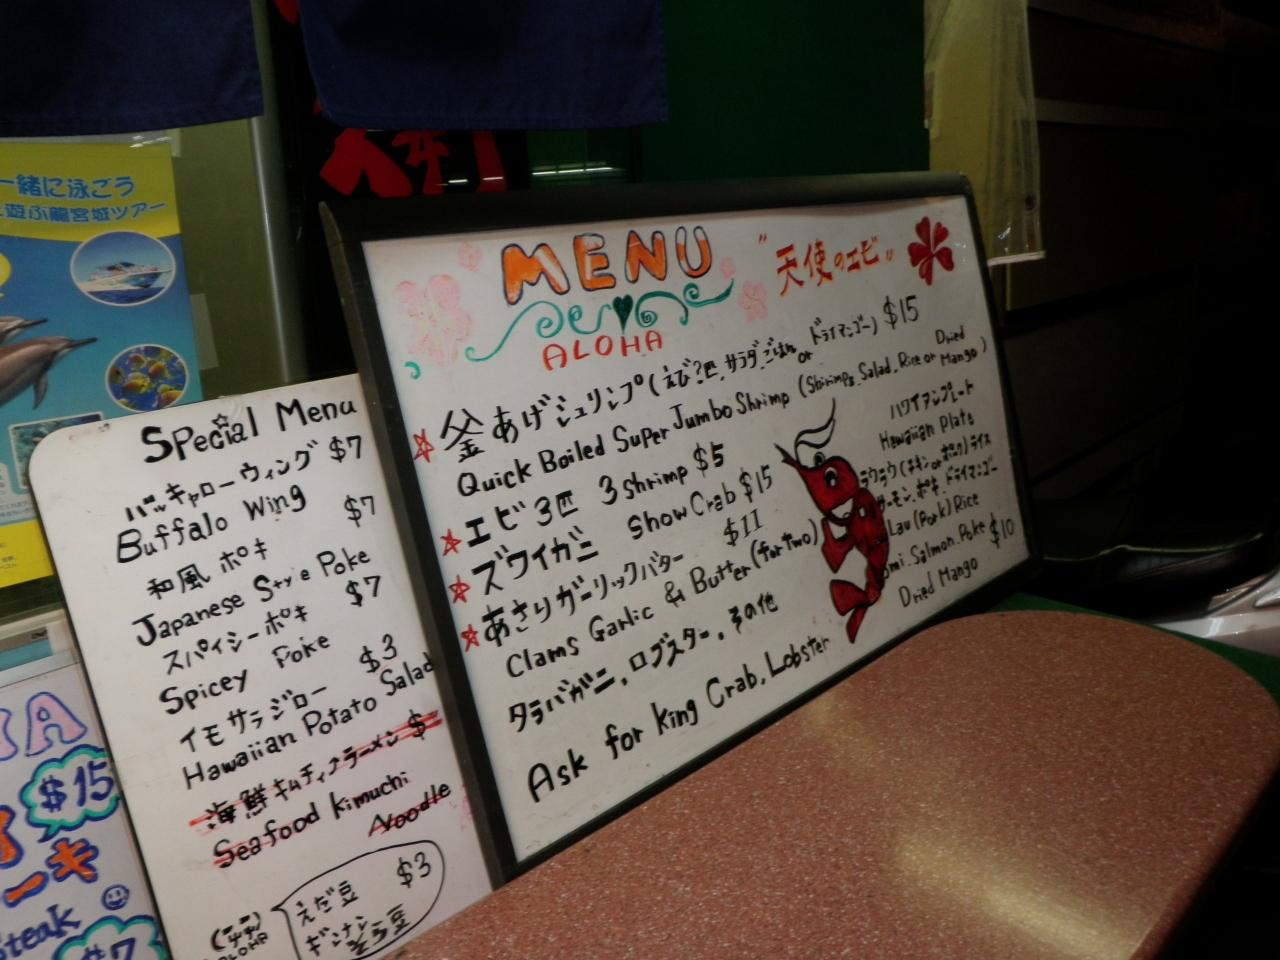 一緒に泳ごう
遊ぶ龍宮城ツアー
MENU
ALOHA
"天使のエビ"
釜あげシュリンプ(えび7匹,サラダ,ごはん or ドライマンゴー) $15
Quick Boiled Super Jumbo Shrimp (Shrimps, Salad, Rice or Dried Mango)
エビ3匹 3 Shrimp $5
ズワイガニ Show Crab $15
あさりガーリックバター $11
Clams Garlic & Butter (for two)
タラバガニ,ロブスター,その他
Ask for King Crab, Lobster
ハワイアンプレート
Hawaiian Plate
ラウラウ(チキン or ポーク)ライス
サーモン,ポキ,ドライマンゴー
Lau (Pork) Rice
Salmon, Poke $10
Dried Mango
Special Menu
バッキャローウィング $7
Buffalo Wing
和風ポキ $7
Japanese Style Poke
スパイシーポキ $7
Spicey Poke
イモサラジロー $3
Hawaiian Potato Salad
海鮮キムチィラーメン $
Seafood Kimuchi
Noodle
えだ豆 $3
ギンナン
そら豆
ALOHA
$15
ーキ
Steak
$7